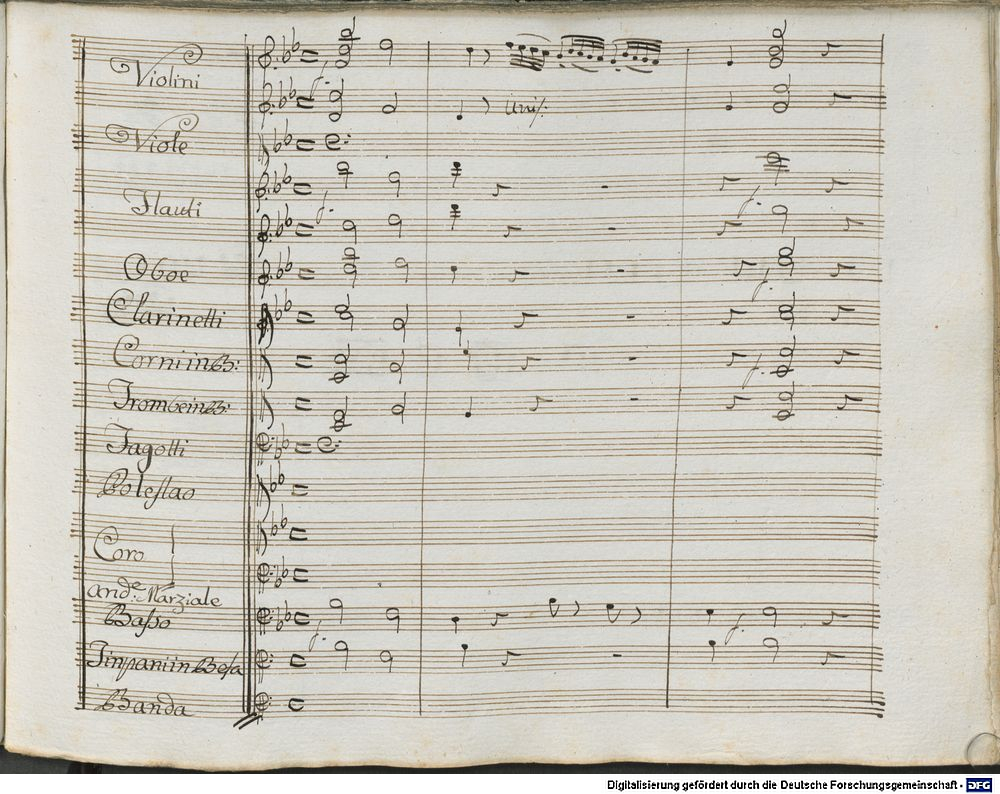 Violini
Unis:
Viole
Flauti
Oboe
Clarinetti
Corni in B:
Trombe in B:
Fagotti
Boleslao
Coro
And:e Marziale
Basso
Timpani in Befa
Banda
Digitalisierung gefördert durch die Deutsche Forschungsgemeinschaft - DFG